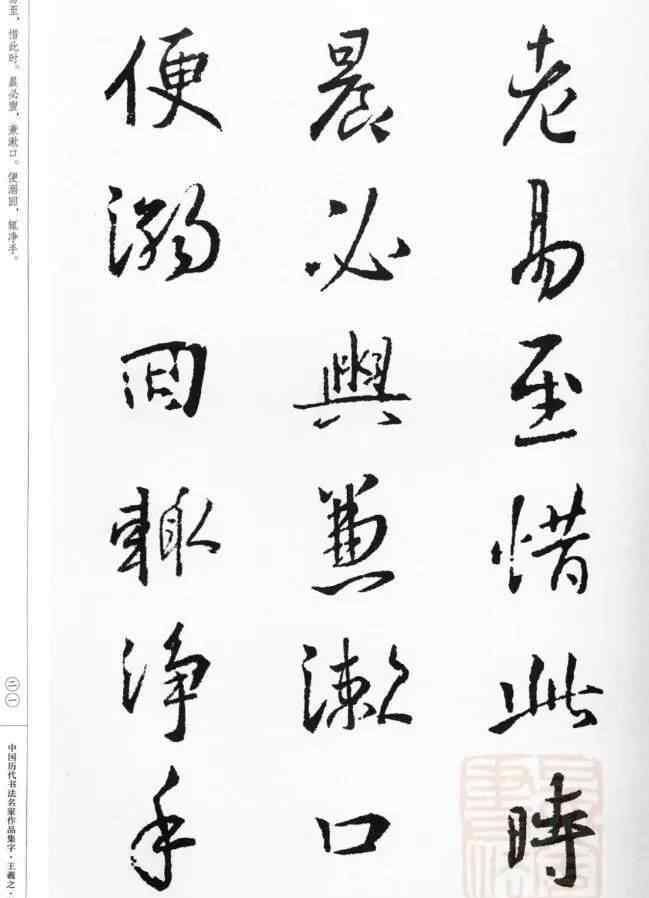 老易至惜此時
晨必興兼漱口
便溺回輒净手
易至，惜此时。晨必盥，兼漱口。便溺回，辄净手。
二一
中国历代书法名家作品集字·王羲之·